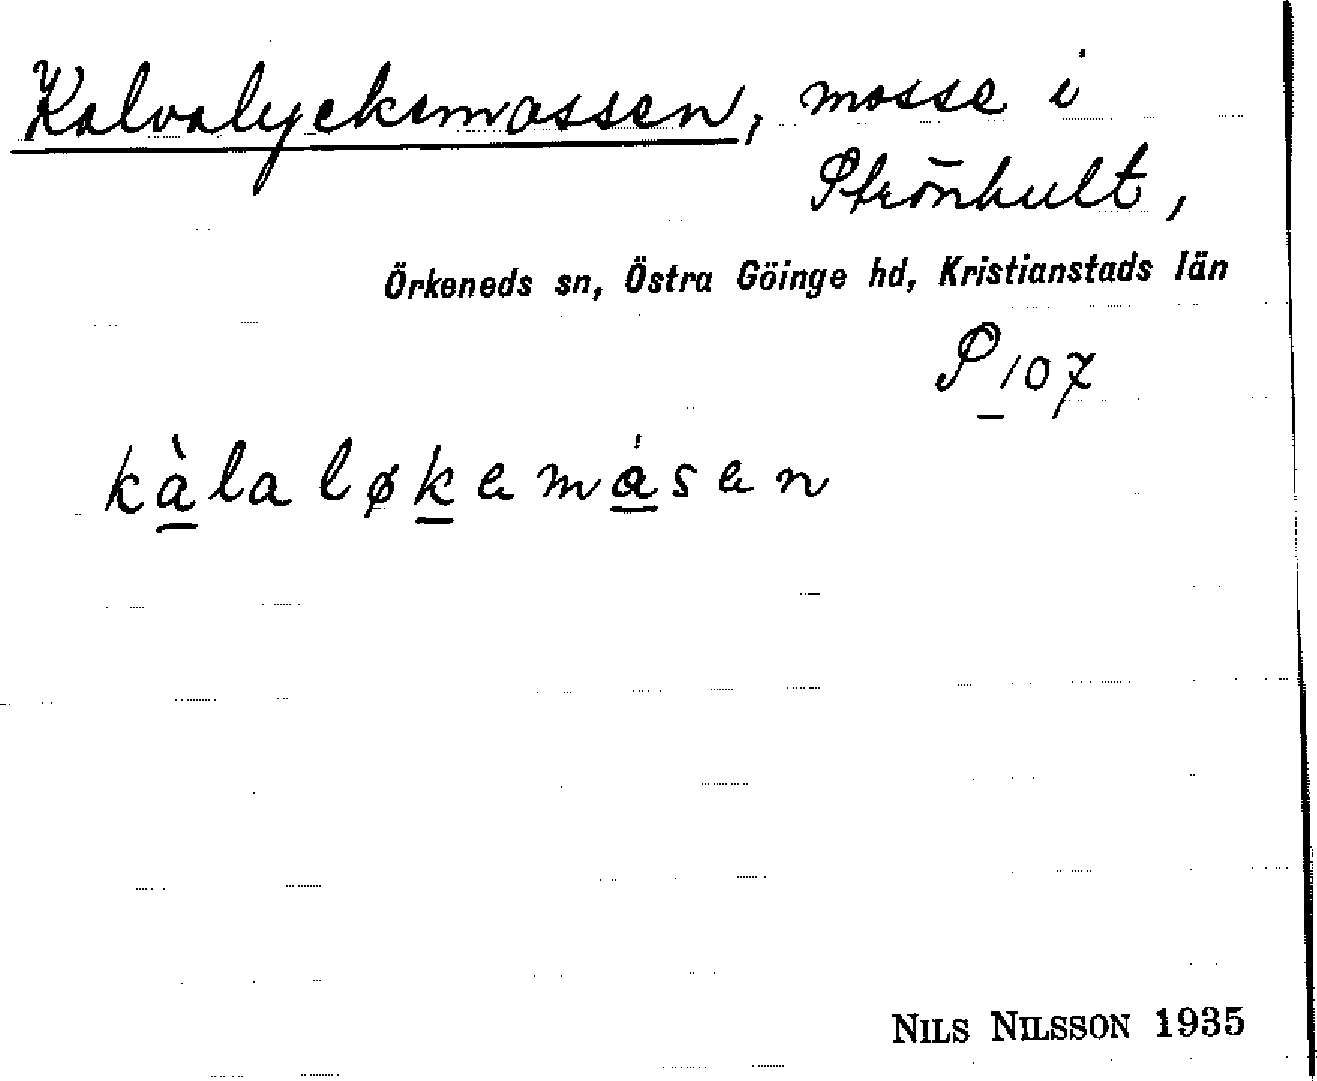 Kalvalyckemossen, mosse i
Strönhult,
Örkeneds sn, Östra Göinge hd, Kristianstads län
S 107
kàlaløkemåsen
NILS NILSSON 1935